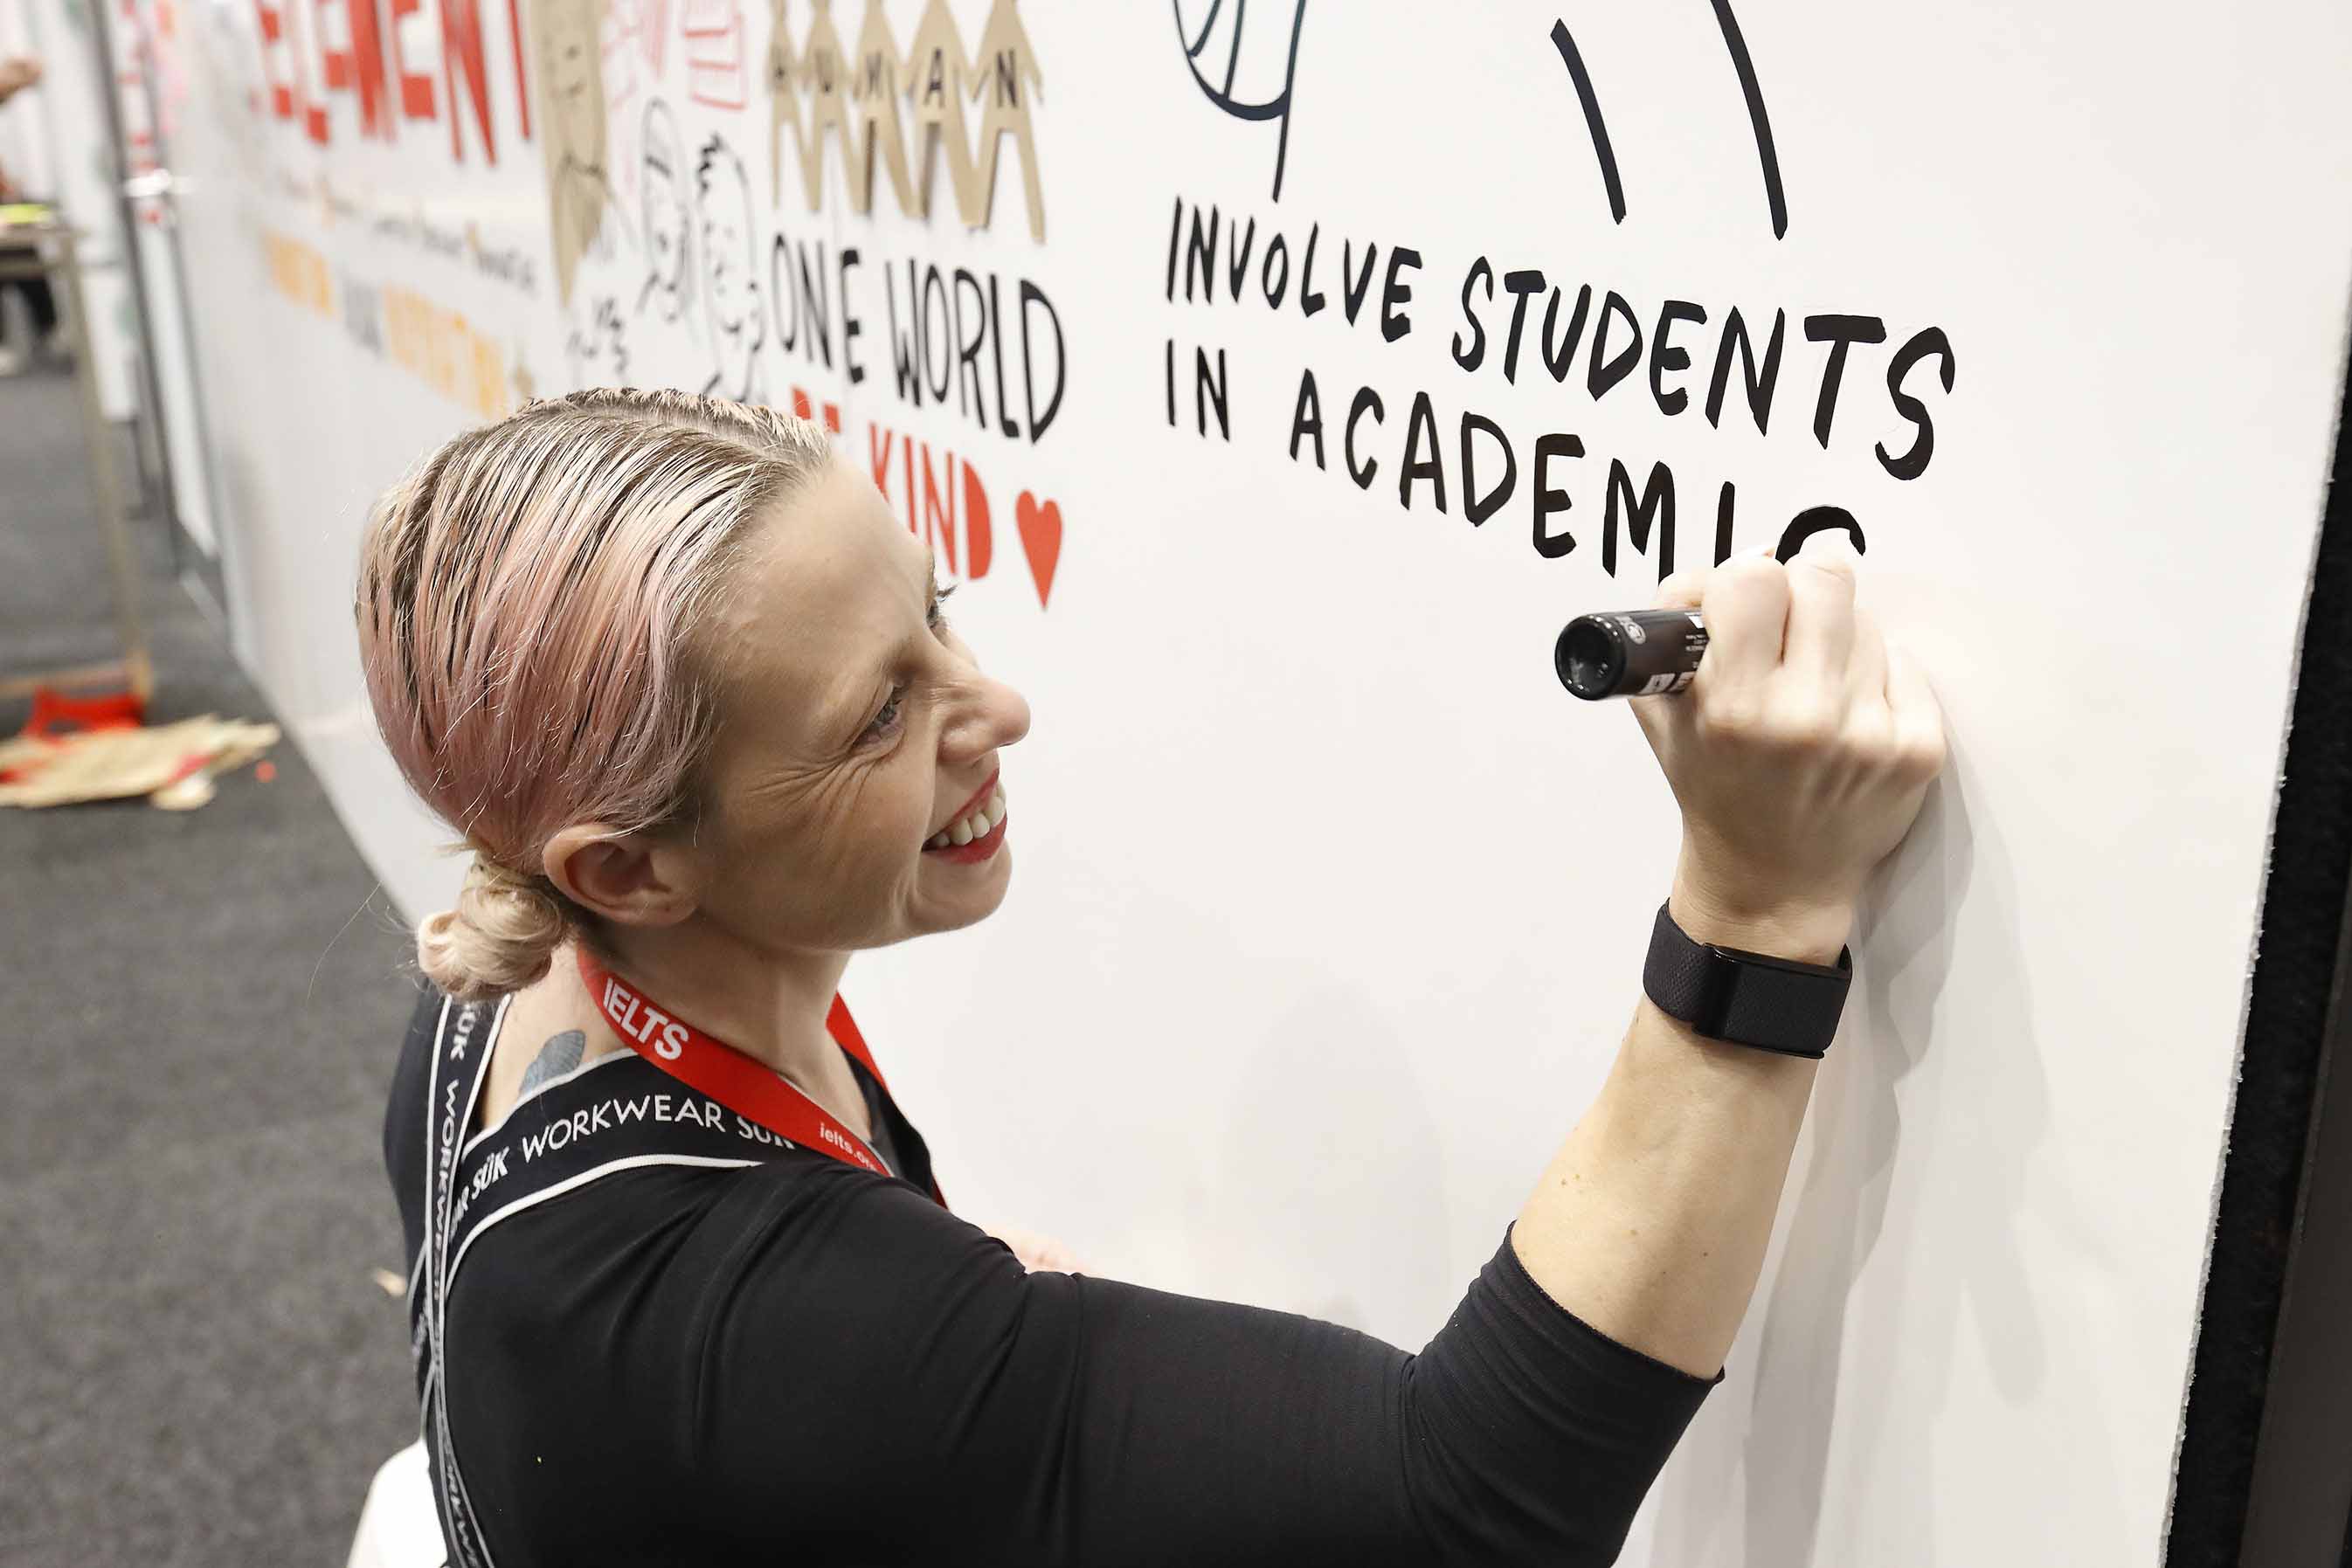 ELEMENT
HUMAN
ONE WORLD
BE KIND
INVOLVE STUDENTS
IN ACADEMIC
IELTS
ielts.o
WORKWEAR SÜK
SÜK
WORKWEAR